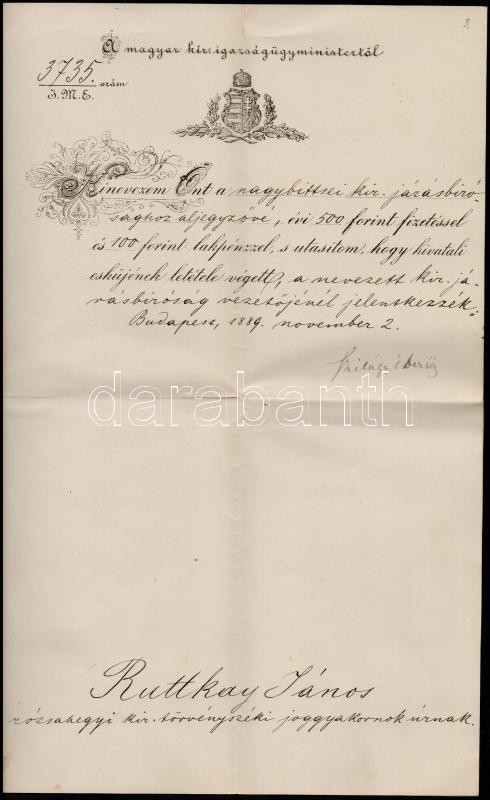 3
A magyar kir. igazságügyministertől
3735. szám
I.M.E.
Kinevezem Önt a nagybittsei kir. járásbiró-
sághoz aljegyzővé, évi 500 forint fizetéssel
és 100 forint lakpénzzel, s utasitom, hogy hivatali
esküjének letétele végett, a nevezett kir. já-
rásbiróság vezetőjénél jelentkezzék.
Budapest, 1889. november 2.
Szilágyi Dezső
darabanth
Ruttkay János
rózsahegyi kir. törvényszéki joggyakornok úrnak.